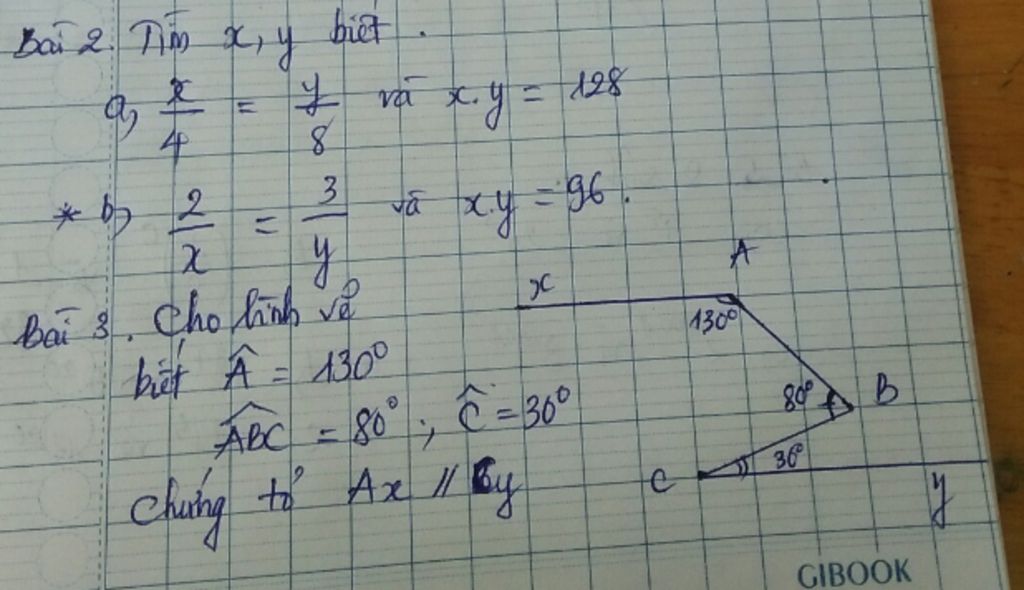 Bài 2. Tìm x, y biết.
a, x/4 = y/8 và x.y = 128
* b, 2/x = 3/y và x.y = 96.
Bài 3. Cho hình vẽ
biết Â = 130°
ABC = 80°; Ĉ = 30°
Chứng tỏ Ax // Cy
x A
130°
80° B
C 30°
y
GIBOOK